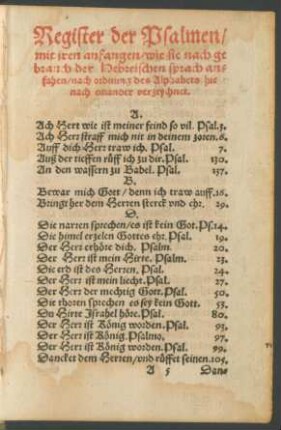 Register der Psalmen/
mit iren anfangen/ wie sie nach ge
brauch der Hebreischen sprach ans
fahen/ nach ordnung des Alphabets hie
nach einander verzeychnet.
A.
Ach Herr wie ist meiner feind so vil. Psal. 3.
Ach Herr straff mich nit in deinem zoren. 6.
Auff dich Herr traw ich. Psal. 7.
Auß der tieffen rüff ich zu dir. Psal. 130.
An den wassern zu Babel. Psal. 137.
B.
Bewar mich Gott/ denn ich traw auff. 16.
Bringt her dem Herren sterck vnd ehr. 29.
D.
Die narren sprechen/ es ist kein Got. Ps. 14.
Die himel erzelen Gottes ehr. Psal. 19.
Der Herr erhöre dich. Psalm. 20.
Der Herr ist mein Hirte. Psalm. 23.
Die erd ist des Herren. Psal. 24.
Der Herr ist mein liecht. Psal. 27.
Der Herr der mechtig Gott. Psal. 50.
Die thoren sprechen es sey kein Gott. 53.
Du Hirte Israhel höre. Psal. 80.
Der Herr ist König worden. Psal. 93.
Der Herr ist König. Psalmo. 97.
Der Herr ist König worden. Psal. 99.
Dancket dem Herren/ vnd rüffet seinen. 105.
A 5 Dan=